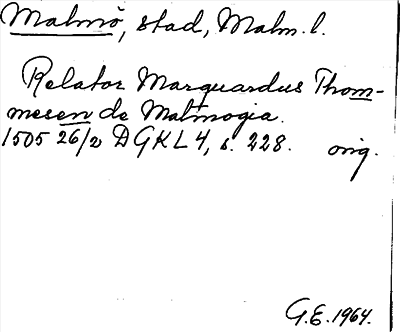 Malmö, stad, Malm. l.
Relator Marquardus Thom-
mesen de Malmogia.
1505 26/2 DGKL4, s. 228. orig.
G.E. 1964.